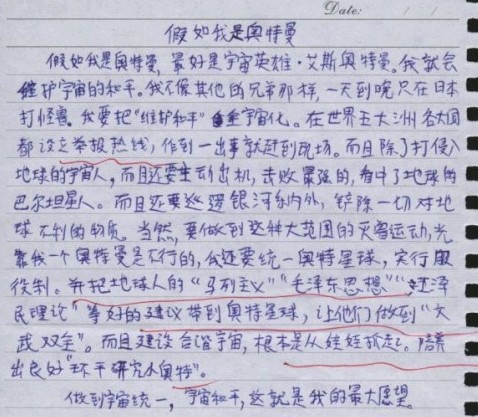 Date:
假如我是奥特曼
假如我是奥特曼,最好是宇宙英雄·艾斯奥特曼。我就会
维护宇宙的和平。我不像其他的兄弟那样,一天到晚只在日本
打怪兽。我要把"维护和平"宇宙化。在世界五大洲各大国
都设立举报热线,作到一出事就赶到现场。而且除了打侵入
地球的宇宙人,而且还要主动出机,击败最强的,看中了地球的
巴尔坦星人。而且还要巡逻银河系内外,铲除一切对地
球不利的物质。当然,要做到这种大范围的灭害运动,光
靠我一个奥特曼是不行的,我还要统一奥特星球,实行服
役制。并把地球人的"马列主义""毛泽东思想""泽
民理论"等好的建议带到奥特星球,让他们做到"文
武双全"。而且建设合谐宇宙,根本是从娃娃抓起。培养
出良好"环平研究小奥特"。
做到宇宙统一,宇宙和平,这就是我的最大愿望